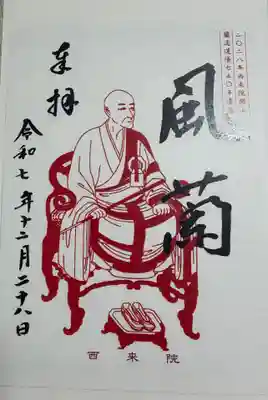 二〇二八年西来院開山
蘭渓道隆七五〇年遠
風蘭
奉拝
令和七年十二月二十八日
西来院